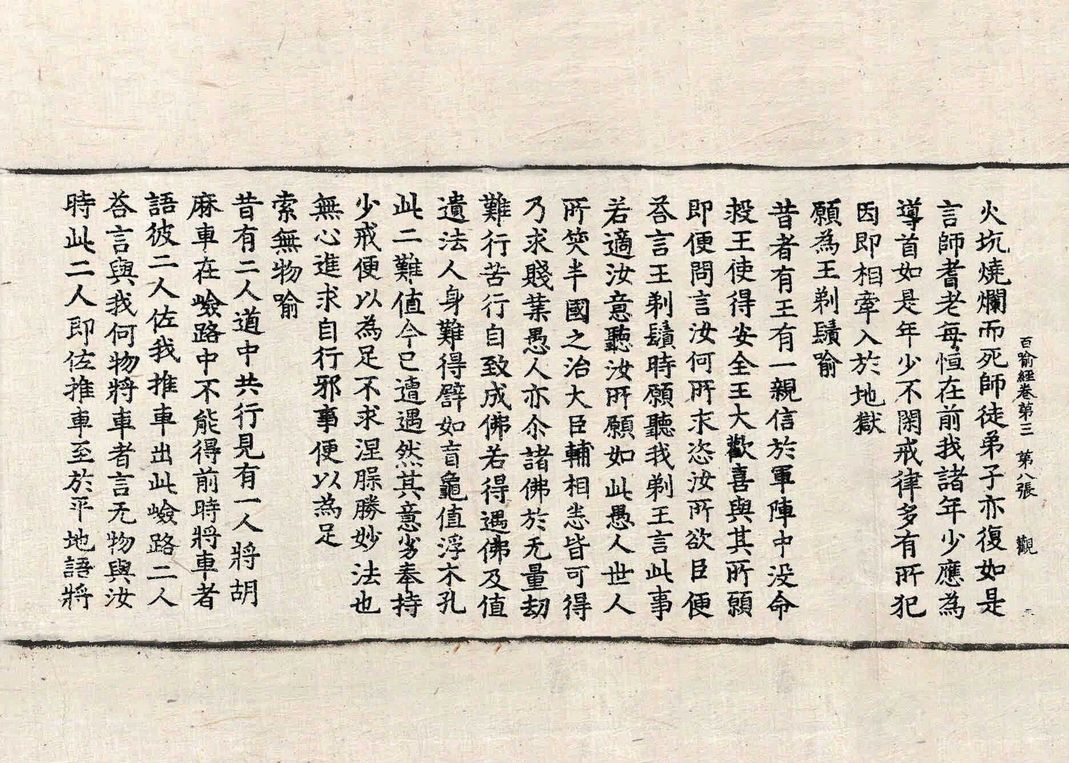 百喻經卷第三 第八張 觀
火坑燒爛而死師徒弟子亦復如是
言師耆老每恒在前我諸年少應為
導首如是年少不閑戒律多有所犯
因即相牽入於地獄
願為王剃鬚喻
昔者有王有一親信於軍陣中没命
救王使得安全王大歡喜與其所願
即便問言汝何所求恣汝所欲臣便
荅言王剃鬚時願聽我剃王言此事
若適汝意聽汝所願如此愚人世人
所笑半國之治大臣輔相悉皆可得
乃求賤業愚人亦尒諸佛於无量劫
難行苦行自致成佛若得遇佛及值
遺法人身難得譬如盲龜值浮木孔
此二難值今已遭遇然其意劣奉持
少戒便以為足不求涅槃勝妙法也
無心進求自行邪事便以為足
索無物喻
昔有二人道中共行見有一人將胡
麻車在嶮路中不能得前時將車者
語彼二人佐我推車出此嶮路二人
荅言與我何物將車者言无物與汝
時此二人即佐推車至於平地語將